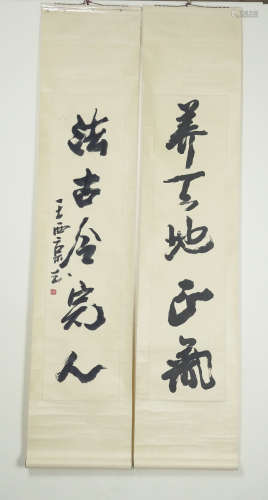 养天地正氣
法古今完人
王西京书